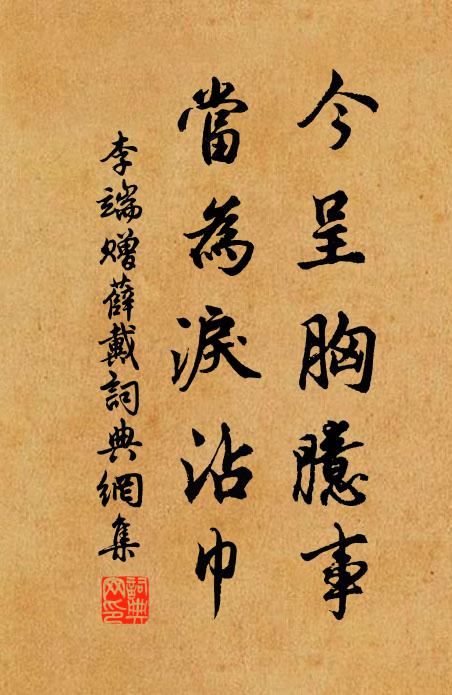 今呈胸臆事
當為淚沾巾
李端贈薛戴詞典網集
詞典網印